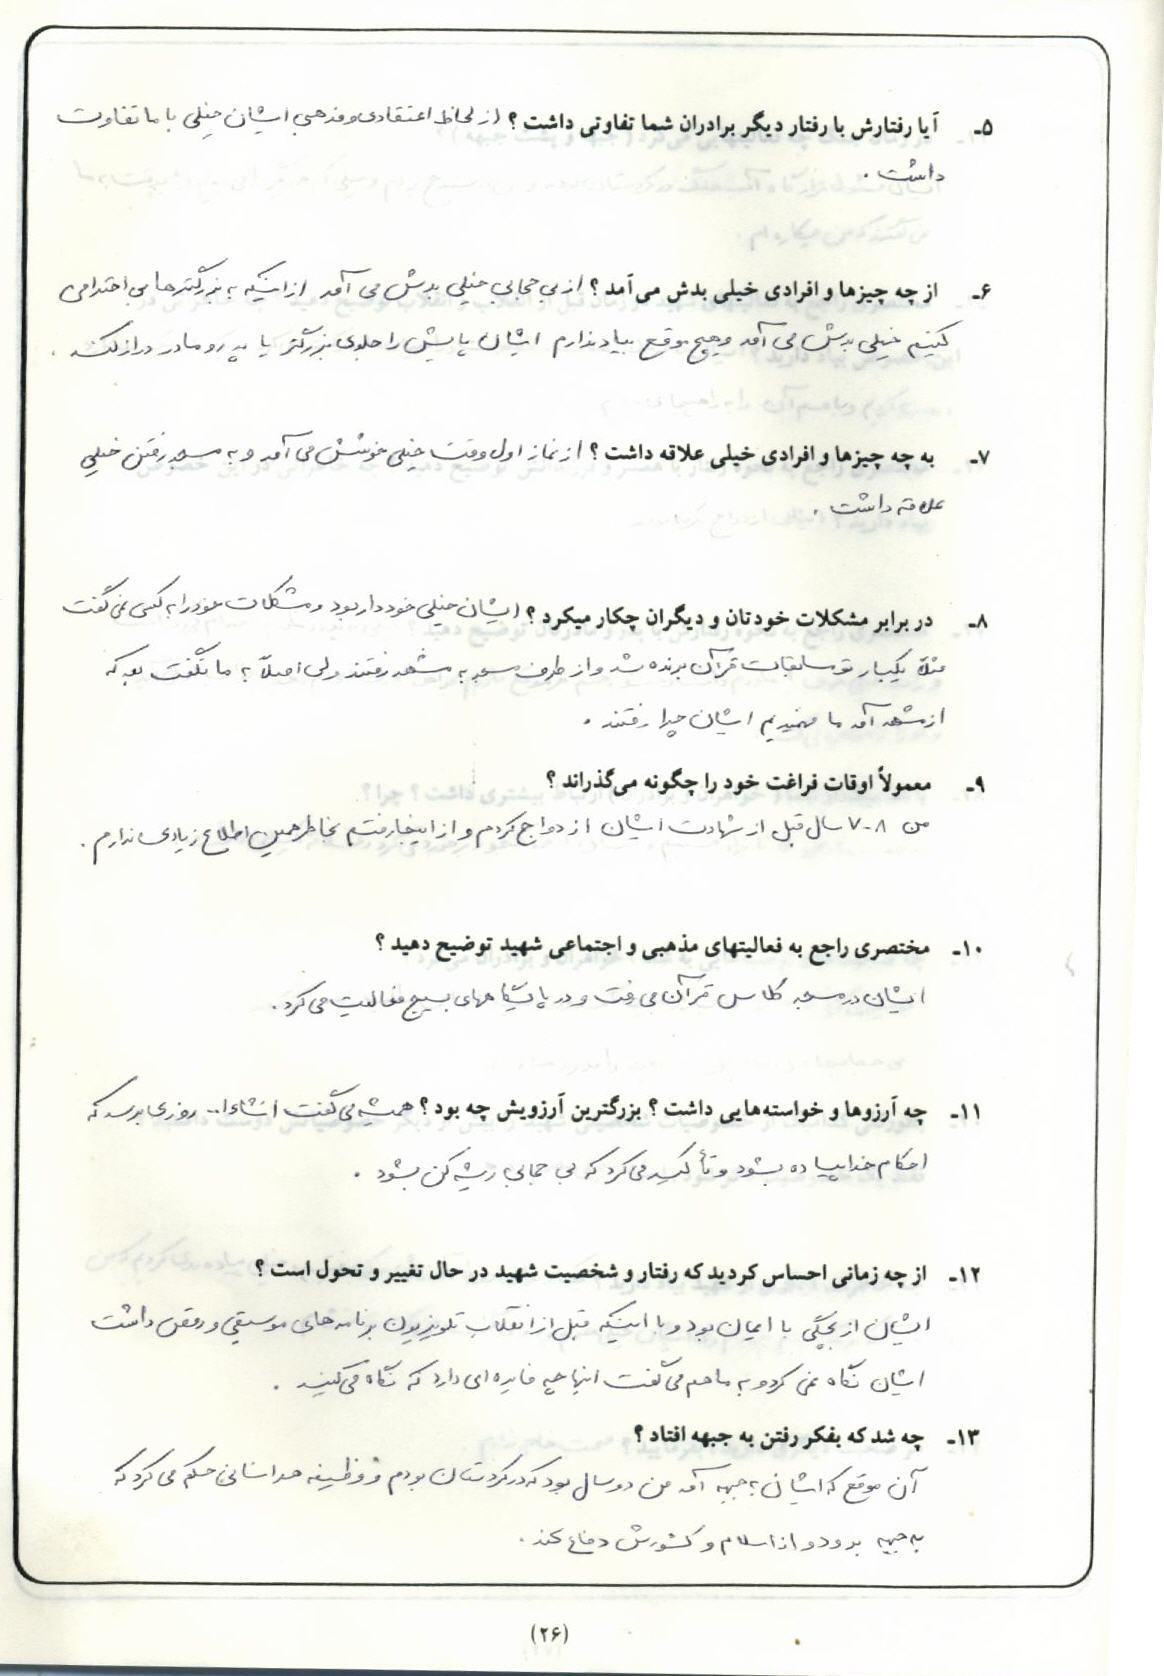 ۵ـ آیا رفتارش با رفتار دیگر برادران شما تفاوتی داشت ؟ از لحاظ اعتقادی و مذهبی ایشان خیلی با ما تفاوت
داشت .
۶ـ از چه چیزها و افرادی خیلی بدش می‌آمد ؟ از بی حجابی خیلی بدش می آمد از اینکه به بزرگترها بی احترامی
کنیم خیلی بدش می آمد و هیچ موقع بیاد ندارم ایشان پایش را جلوی بزرگتر یا پدر و مادر دراز کند .
۷ـ به چه چیزها و افرادی خیلی علاقه داشت ؟ از نماز اول وقت خیلی خوشش می آمد و به مسجد رفتن خیلی
علاقه داشت .
۸ـ در برابر مشکلات خودتان و دیگران چکار میکرد ؟ ایشان خیلی خوددار بود و مشکلات خود را به کسی نمی گفت
مثلاً یکبار تو مسابقات قرآن برنده شد و از طرف مسجد به مشهد رفتند ولی اصلاً به ما نگفت بعد که
از مشهد آمد ما فهمیدیم ایشان چرا رفتند .
۹ـ معمولاً اوقات فراغت خود را چگونه می‌گذراند ؟
من ۸-۷ سال قبل از شهادت ایشان ازدواج کردم و از اینجا رفتم بخاطر همین اطلاع زیادی ندارم .
۱۰ـ مختصری راجع به فعالیتهای مذهبی و اجتماعی شهید توضیح دهید ؟
ایشان در مسجد کلاس قرآن می رفت و در پایگاههای بسیج فعالیت می کرد .
۱۱ـ چه آرزوها و خواسته‌هایی داشت ؟ بزرگترین آرزویش چه بود ؟ همیشه می گفت انشاءا... روزی برسد که
احکام خدا پیاده بشود و تأکید می کرد که بی حجابی ریشه کن بشود .
۱۲ـ از چه زمانی احساس کردید که رفتار و شخصیت شهید در حال تغییر و تحول است ؟
ایشان از بچگی با ایمان بود و با اینکه قبل از انقلاب تلویزیون برنامه های موسیقی و رقص داشت
ایشان نگاه نمی کرد و به ما هم می گفت اینها چه فایده ای دارد که نگاه می کنید .
۱۳ـ چه شد که بفکر رفتن به جبهه افتاد ؟
آن موقع که ایشان به جبهه آمد من دو سال بود که در کردستان بودم و وظیفه انسانی حکم می کرد که
به جبهه برود و از اسلام و کشورش دفاع کند .
(۲۶)